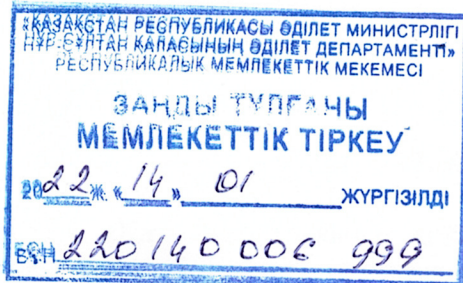 «ҚАЗАҚСТАН РЕСПУБЛИКАСЫ ӘДІЛЕТ МИНИСТРЛІГІ
НҰР-СҰЛТАН ҚАЛАСЫНЫҢ ӘДІЛЕТ ДЕПАРТАМЕНТІ»
РЕСПУБЛИКАЛЫҚ МЕМЛЕКЕТТІК МЕКЕМЕСІ
ЗАҢДЫ ТҰЛҒАНЫ
МЕМЛЕКЕТТІК ТІРКЕУ
2022 ж. «14» 01 ЖҮРГІЗІЛДІ
БСН 220140006 999